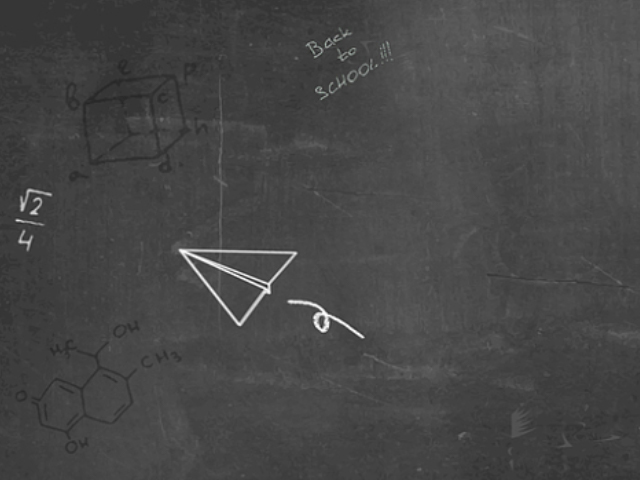 Back
to
SCHOOL!!!
e p
b c
h
a d.
√2
4
OH
CH3
O
OH